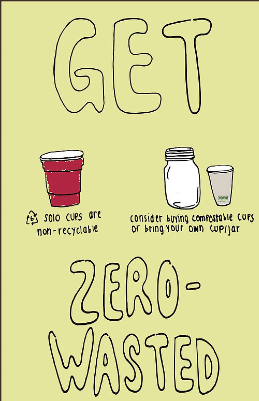 GET
SOLO CUPS are
non-recyclable
consider buying compostable cups
or bring your own cup/jar
ZERO-
WASTED